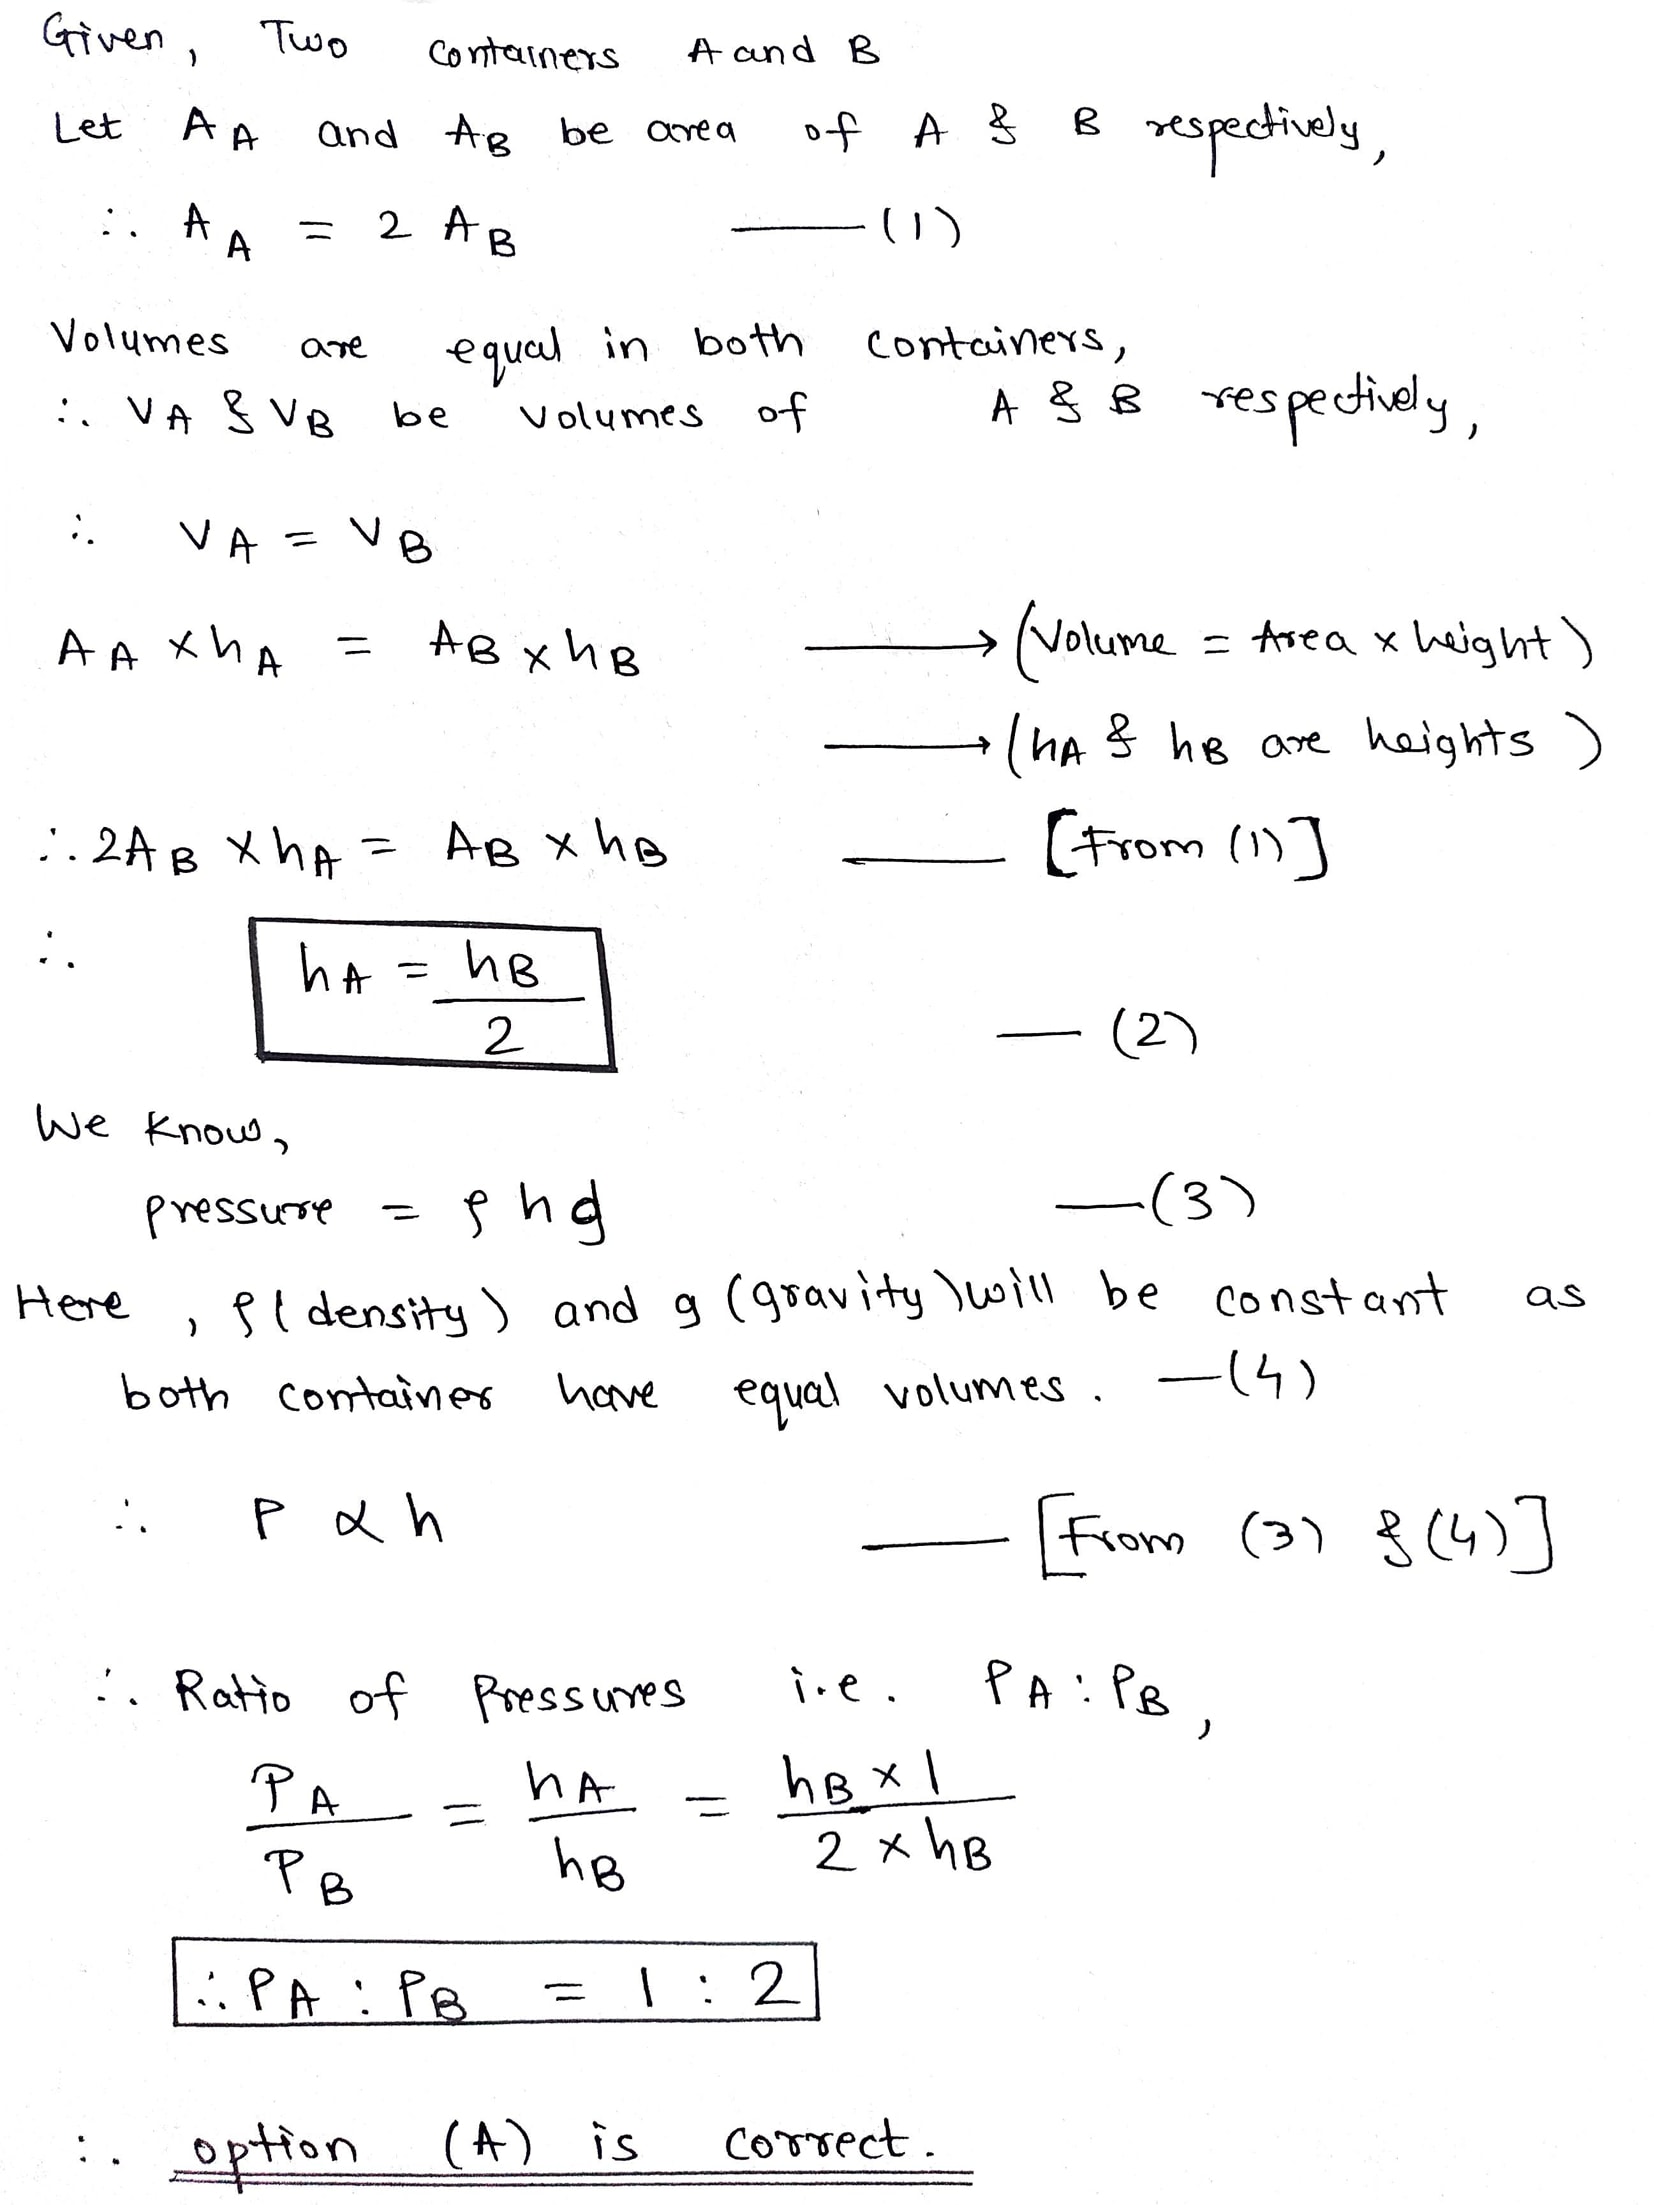 Given, Two containers A and B
Let AA and AB be area of A & B respectively,
∴ AA = 2 AB —(1)
Volumes are equal in both containers,
∴ VA & VB be volumes of A & B respectively,
∴ VA = VB
AA × hA = AB × hB → (Volume = Area × height)
→ (hA & hB are heights)
∴ 2AB × hA = AB × hB — [From (1)]
∴ hA = hB/2 — (2)
We know,
pressure = ρhg —(3)
Here, ρ(density) and g (gravity) will be constant as
both container have equal volumes. —(4)
∴ P ∝ h — [From (3) & (4)]
∴ Ratio of Pressures i.e. PA : PB,
PA/PB = hA/hB = hB × 1/2 × hB
∴ PA : PB = 1 : 2
∴ option (A) is correct.